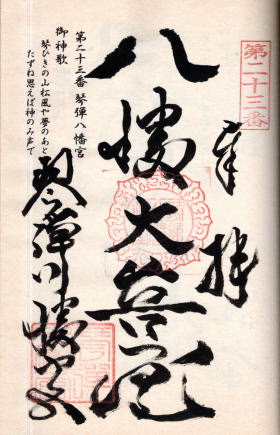 第二十三番
奉拝
八幡大菩薩
第二十三番 琴弾八幡宮
御神歌
琴ひきの山松風や夢のあと
たずね思えば神のみ声で
琴弾八幡宮